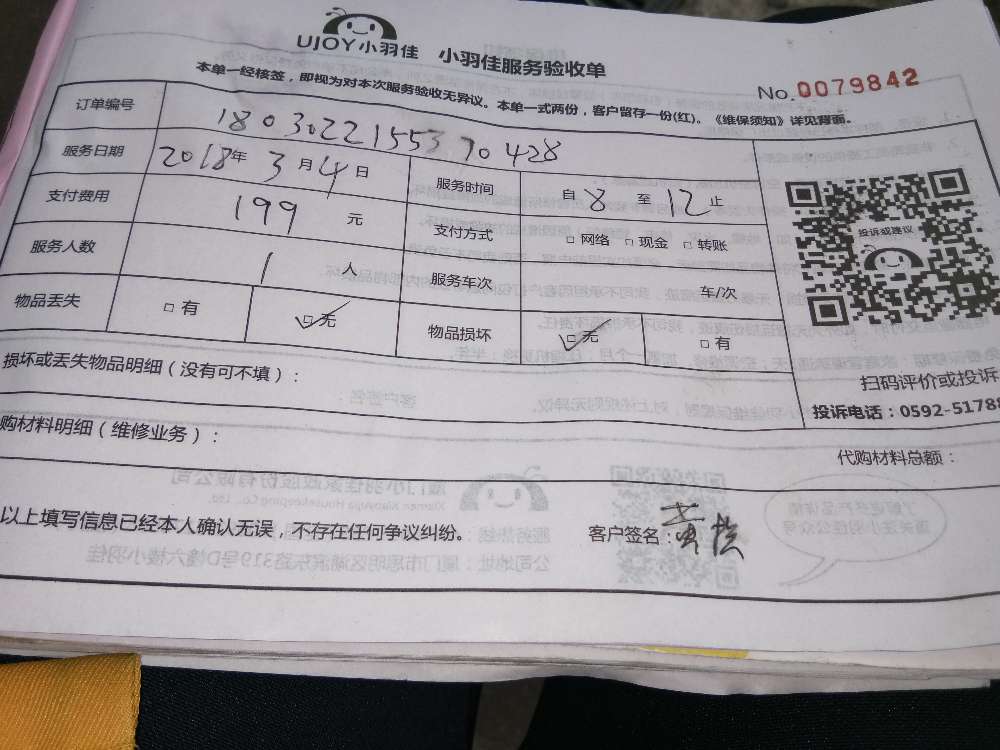 UJOY小羽佳 小羽佳服务验收单
No.0079842
本单一经核签，即视为对本次服务验收无异议。本单一式两份，客户留存一份(红)。《维保须知》详见背面。
订单编号 1803022155370428
服务日期 2018年3月4日 服务时间 自8至12止
支付费用 199元 支付方式 □网络 □现金 □转账
服务人数 1人 服务车次 车/次
物品丢失 □有 □无 物品损坏 □无 □有
投诉或建议
扫码评价或投诉
投诉电话：0592-51788
损坏或丢失物品明细（没有可不填）：
购材料明细（维修业务）：
代购材料总额：
以上填写信息已经本人确认无误，不存在任何争议纠纷。 客户签名：黄